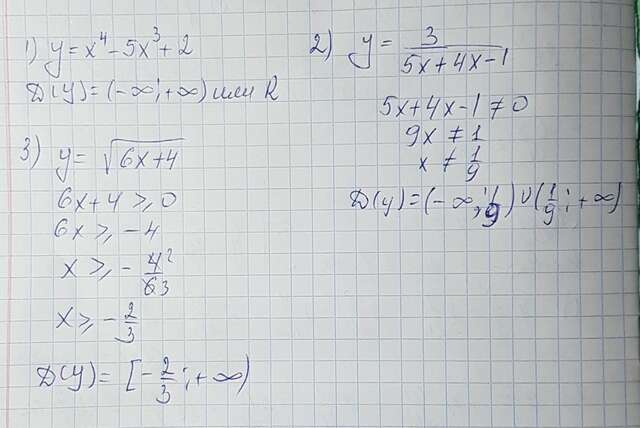 1) y = x⁴ - 5x³ + 2
D(y) = (-∞; +∞) или R
2) y = 3/(5x + 4x - 1)
5x + 4x - 1 ≠ 0
9x ≠ 1
x ≠ 1/9
D(y) = (-∞; 1/9) ∪ (1/9; +∞)
3) y = √(6x + 4)
6x + 4 ≥ 0
6x ≥ -4
x ≥ - 4̸²/6̸3
x ≥ - 2/3
D(y) = [-2/3; +∞)